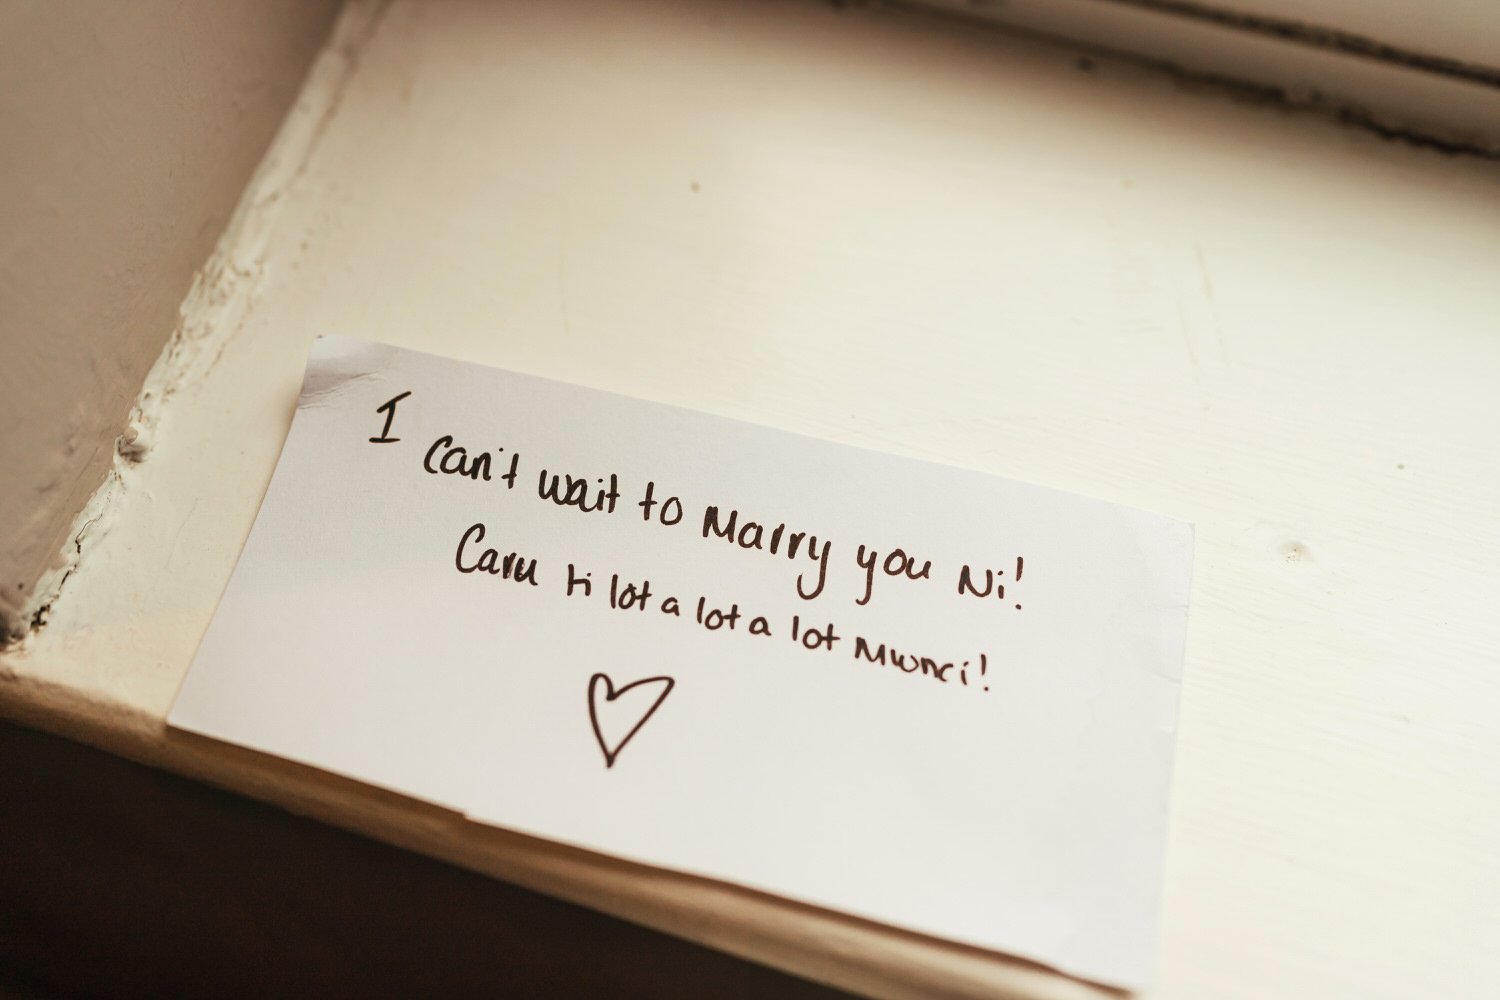 I can't wait to Marry you Ni!
Caru ti lot a lot a lot Mwnci!